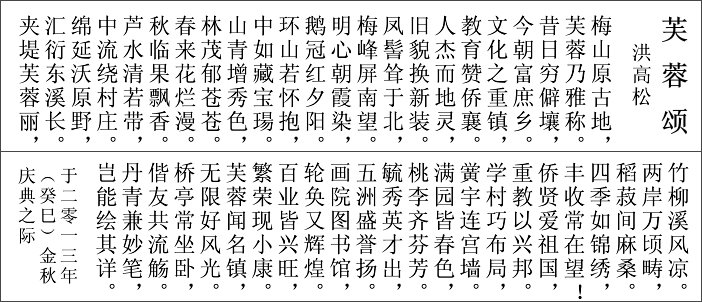 芙蓉颂
洪高松
梅山原古地，
芙蓉乃雅称。
昔日穷僻壤，
今朝富庶乡。
文化之重镇，
教育赞侨襄。
人杰而地灵，
旧貌换新装。
凤髻耸于北，
梅峰屏南望。
明心朝霞染，
鹅冠红夕阳。
环山若怀抱，
中如藏宝瑒。
山青增秀色，
林茂郁苍苍。
春来花烂漫，
秋临果飘香。
芦水清若带，
中流绕村庄。
绵延沃原野，
汇衍东溪长。
夹堤芙蓉丽，
竹柳溪风凉。
两岸万顷畴，
稻菽间麻桑。
四季如锦绣，
丰收常在望！
侨贤爱祖国，
重教以兴邦。
学村巧布局，
黉宇连宫墙。
满园皆春色，
桃李齐芬芳。
毓秀英才出，
五洲盛誉扬。
画院图书馆，
轮奂又辉煌。
百业皆兴旺，
繁荣现小康。
芙蓉闻名镇，
无限好风光。
桥亭常坐卧，
偕友共流觞。
丹青兼妙笔，
岂能绘其详。
于二零一三年
（癸巳）金秋
庆典之际